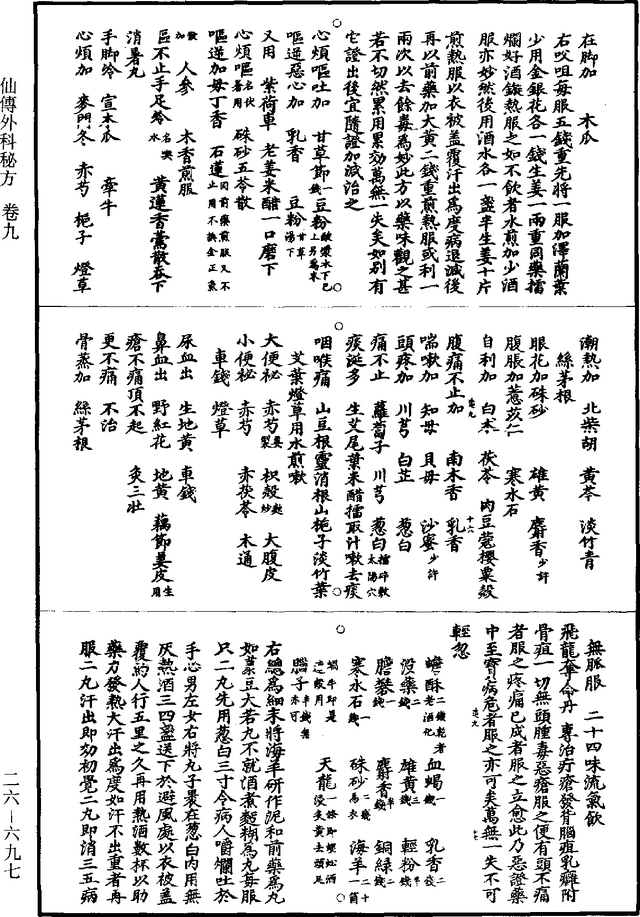 仙傳外科秘方　卷九
二六—六九七
在脚加　木瓜
右㕮咀每服五錢重先將一服加澤蘭葉
少用金銀花各一錢生姜一兩重同藥擂
爛好酒鏇熱服之如不飲者水煎加少酒
服亦妙然後用酒水各一盞半生姜十片
煎熱服以衣被盖覆汗出為度病退減後
再以前藥加大黄二錢重煎熱服或利一
兩次以去餘毒為妙此方以藥味觀之甚
若不切然累用累効萬無一失矣如别有
它證出後宜隨證加減治之
心煩嘔吐加　甘草節一錢　豆粉
嘔逆惡心加　乳香　豆粉甘草湯下
又用　紫荷車　老姜米醋一口磨下
心煩嘔　硃砂五苓散
嘔逆加母丁香　石蓮
加　人參　木香煎服
區不止手足冷　黄連香薷散吞下
消暑丸
手脚冷　宣木瓜　牽牛
心煩加　麥門冬　赤芍　梔子　燈草
潮熱加　北柴胡　黄芩　淡竹青
絲茅根
眼花加硃砂　雄黄　麝香少許
腹脹加薏苡仁　寒水石
自利加　白朮　茯苓　肉豆蔻罌粟殼
腹痛不止加　南木香　乳香
喘嗽加　知母　貝母　沙蜜少許
頭疼加　川芎　白芷　葱白
痛不止　蘿蔔子　川芎　葱白擂碎敷太陽穴
痰涎多　生艾尾葉米醋擂取汁嗽去痰
咽喉痛　山豆根靈消根山梔子淡竹葉
艾葉燈草用水煎嗽
大便祕　赤芍　枳殼麩炒　大腹皮
小便祕　赤芍　赤茯苓　木通
車錢　燈草
尿血出　生地黄　車錢
鼻血出　野紅花　地黄　藕節姜皮生用
瘡不痛頂不起　灸三壯
更不痛　不治
骨蒸加　絲茅根
無脈服　二十四味流氣飲
飛龍奪命丹　專治疔瘡發背腦疽乳癰附
骨疽一切無頭腫毒惡瘡服之便有頭不痛
者服之疼痛已成者服之立愈此乃惡證藥
中至寶病危者服之亦可矣萬無一失不可
輕忽
蟾酥二錢乾者老酒化　血蝎一錢　乳香二錢
没藥二錢　雄黄三錢　輕粉半錢
膽礬一錢　麝香半錢　銅緑二錢
寒水石一錢　硃砂二錢為衣　海羊二十箇
蝸牛即是連殼用　天龍一條即蜈蚣酒浸炙黄去頭足
腦子半錢無亦可
右總為細末將海羊研作泥和前藥為丸
如菉豆大若丸不就酒煮麪糊為丸毎服
只二丸先用葱白三寸令病人嚼爛吐於
手心男左女右將丸子裹在葱白内用無
灰熱酒三四盞送下於避風處以衣被盖
覆約人行五里之久再用熱酒數杯以助
藥力發熱大汗出為度如汗不出重者再
服二丸汗出即効初覺二丸即消三五病